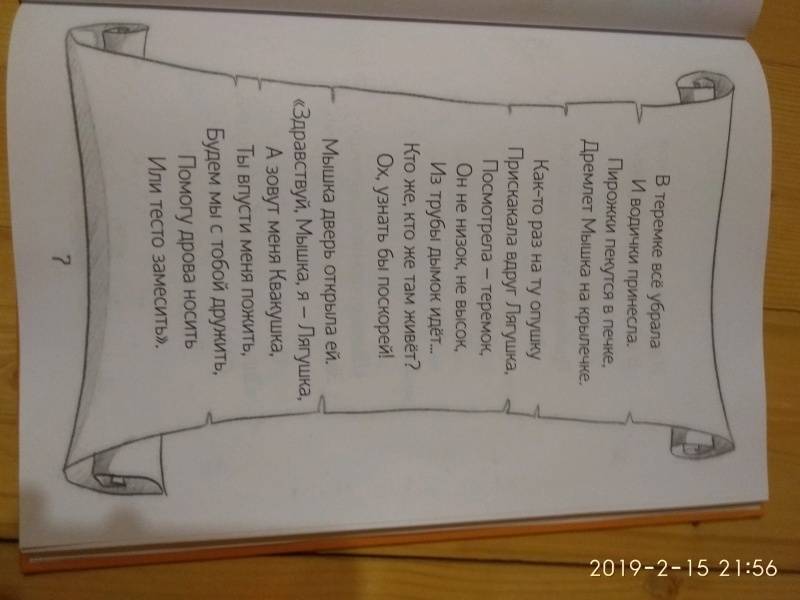 В теремке всё убрала
И водички принесла.
Пирожки пекутся в печке,
Дремлет Мышка на крылечке.
Как-то раз на ту опушку
Прискакала вдруг Лягушка,
Посмотрела – теремок,
Он не низок, не высок,
Из трубы дымок идёт...
Кто же, кто же там живёт?
Ох, узнать бы поскорей!
Мышка дверь открыла ей.
«Здравствуй, Мышка, я – Лягушка,
А зовут меня Квакушка,
Ты впусти меня пожить,
Будем мы с тобой дружить,
Помогу дрова носить
Или тесто замесить».
7
2019-2-15 21:56